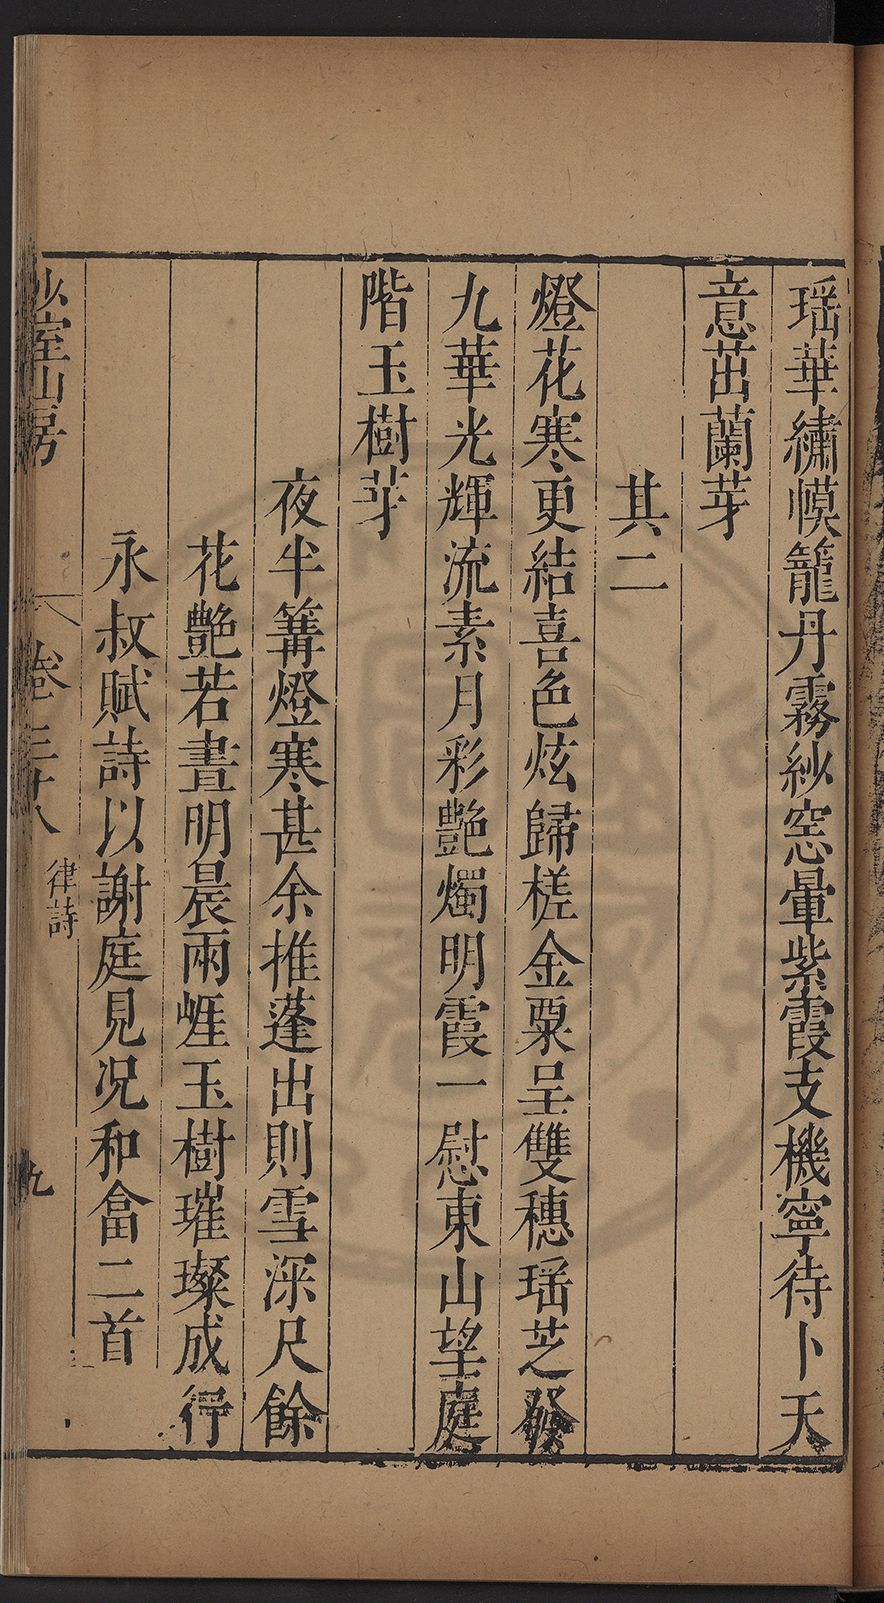 瑶華繡幙籠丹霧紗窓暈紫霞支機寧待卜天
意茁蘭芽
其二
燈花寒更結喜色炫歸槎金粟呈雙穗瑶芝發
九華光輝流素月彩艶燭明霞一慰東山望庭
階玉樹芽
夜半篝燈寒甚余推蓬出則雪深尺餘
花艶若晝明晨兩崕玉樹璀璨成行
永叔賦詩以謝庭見况和畣二首
少室山房
卷三十八
律詩
九